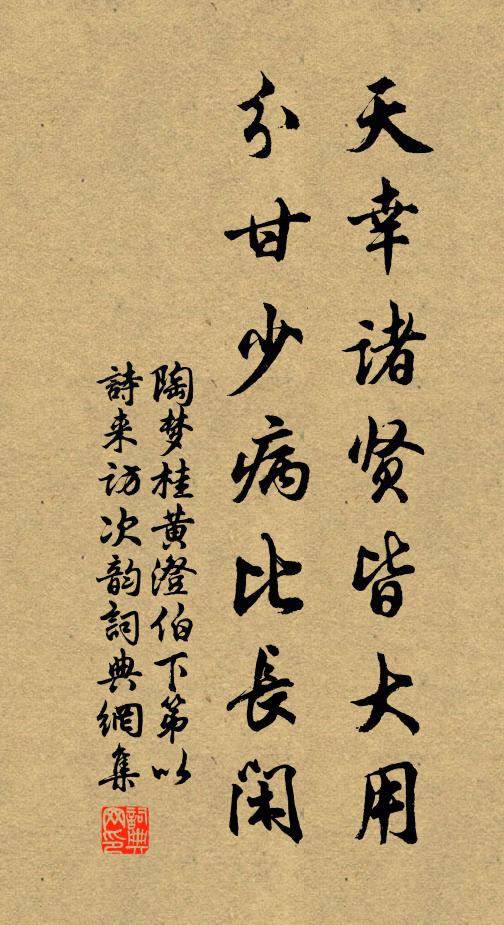 天幸诸贤皆大用
分甘少病比長闲
陶梦桂黄澄伯下第以
詩来访次韵詞典網集
詞典网印